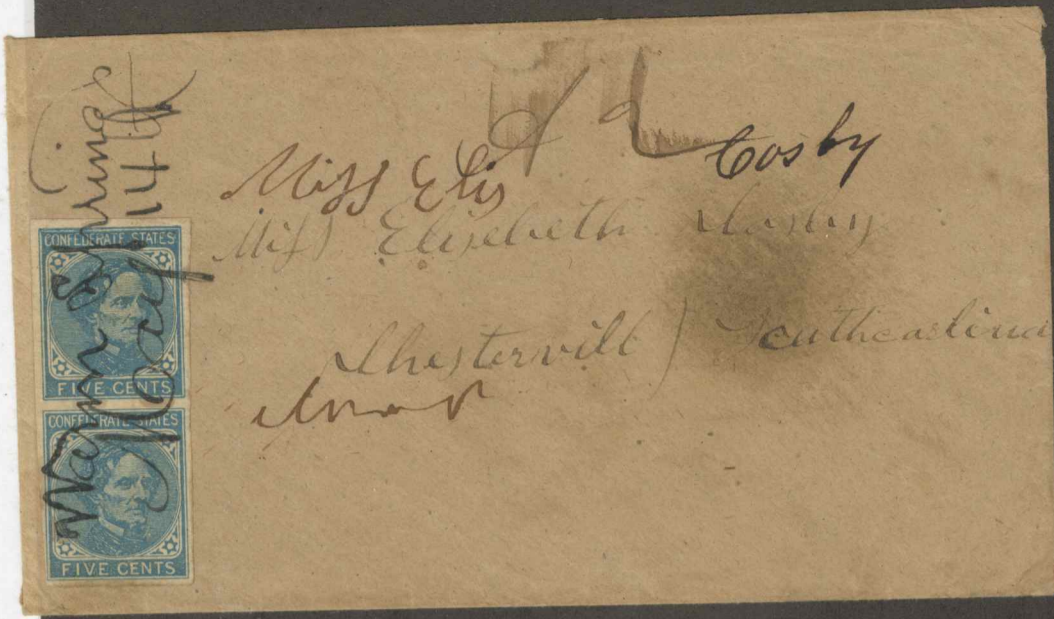 Warm Springs
May 14th
CONFEDERATE STATES
FIVE CENTS
CONFEDERATE STATES
FIVE CENTS
Cosby
Miss Elis
Miss Elisebeth Cosby
Chestervill Southcarlina